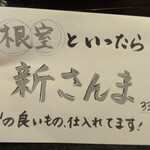 根室といったら
新さんま
33
の良いもの、仕入れてます!